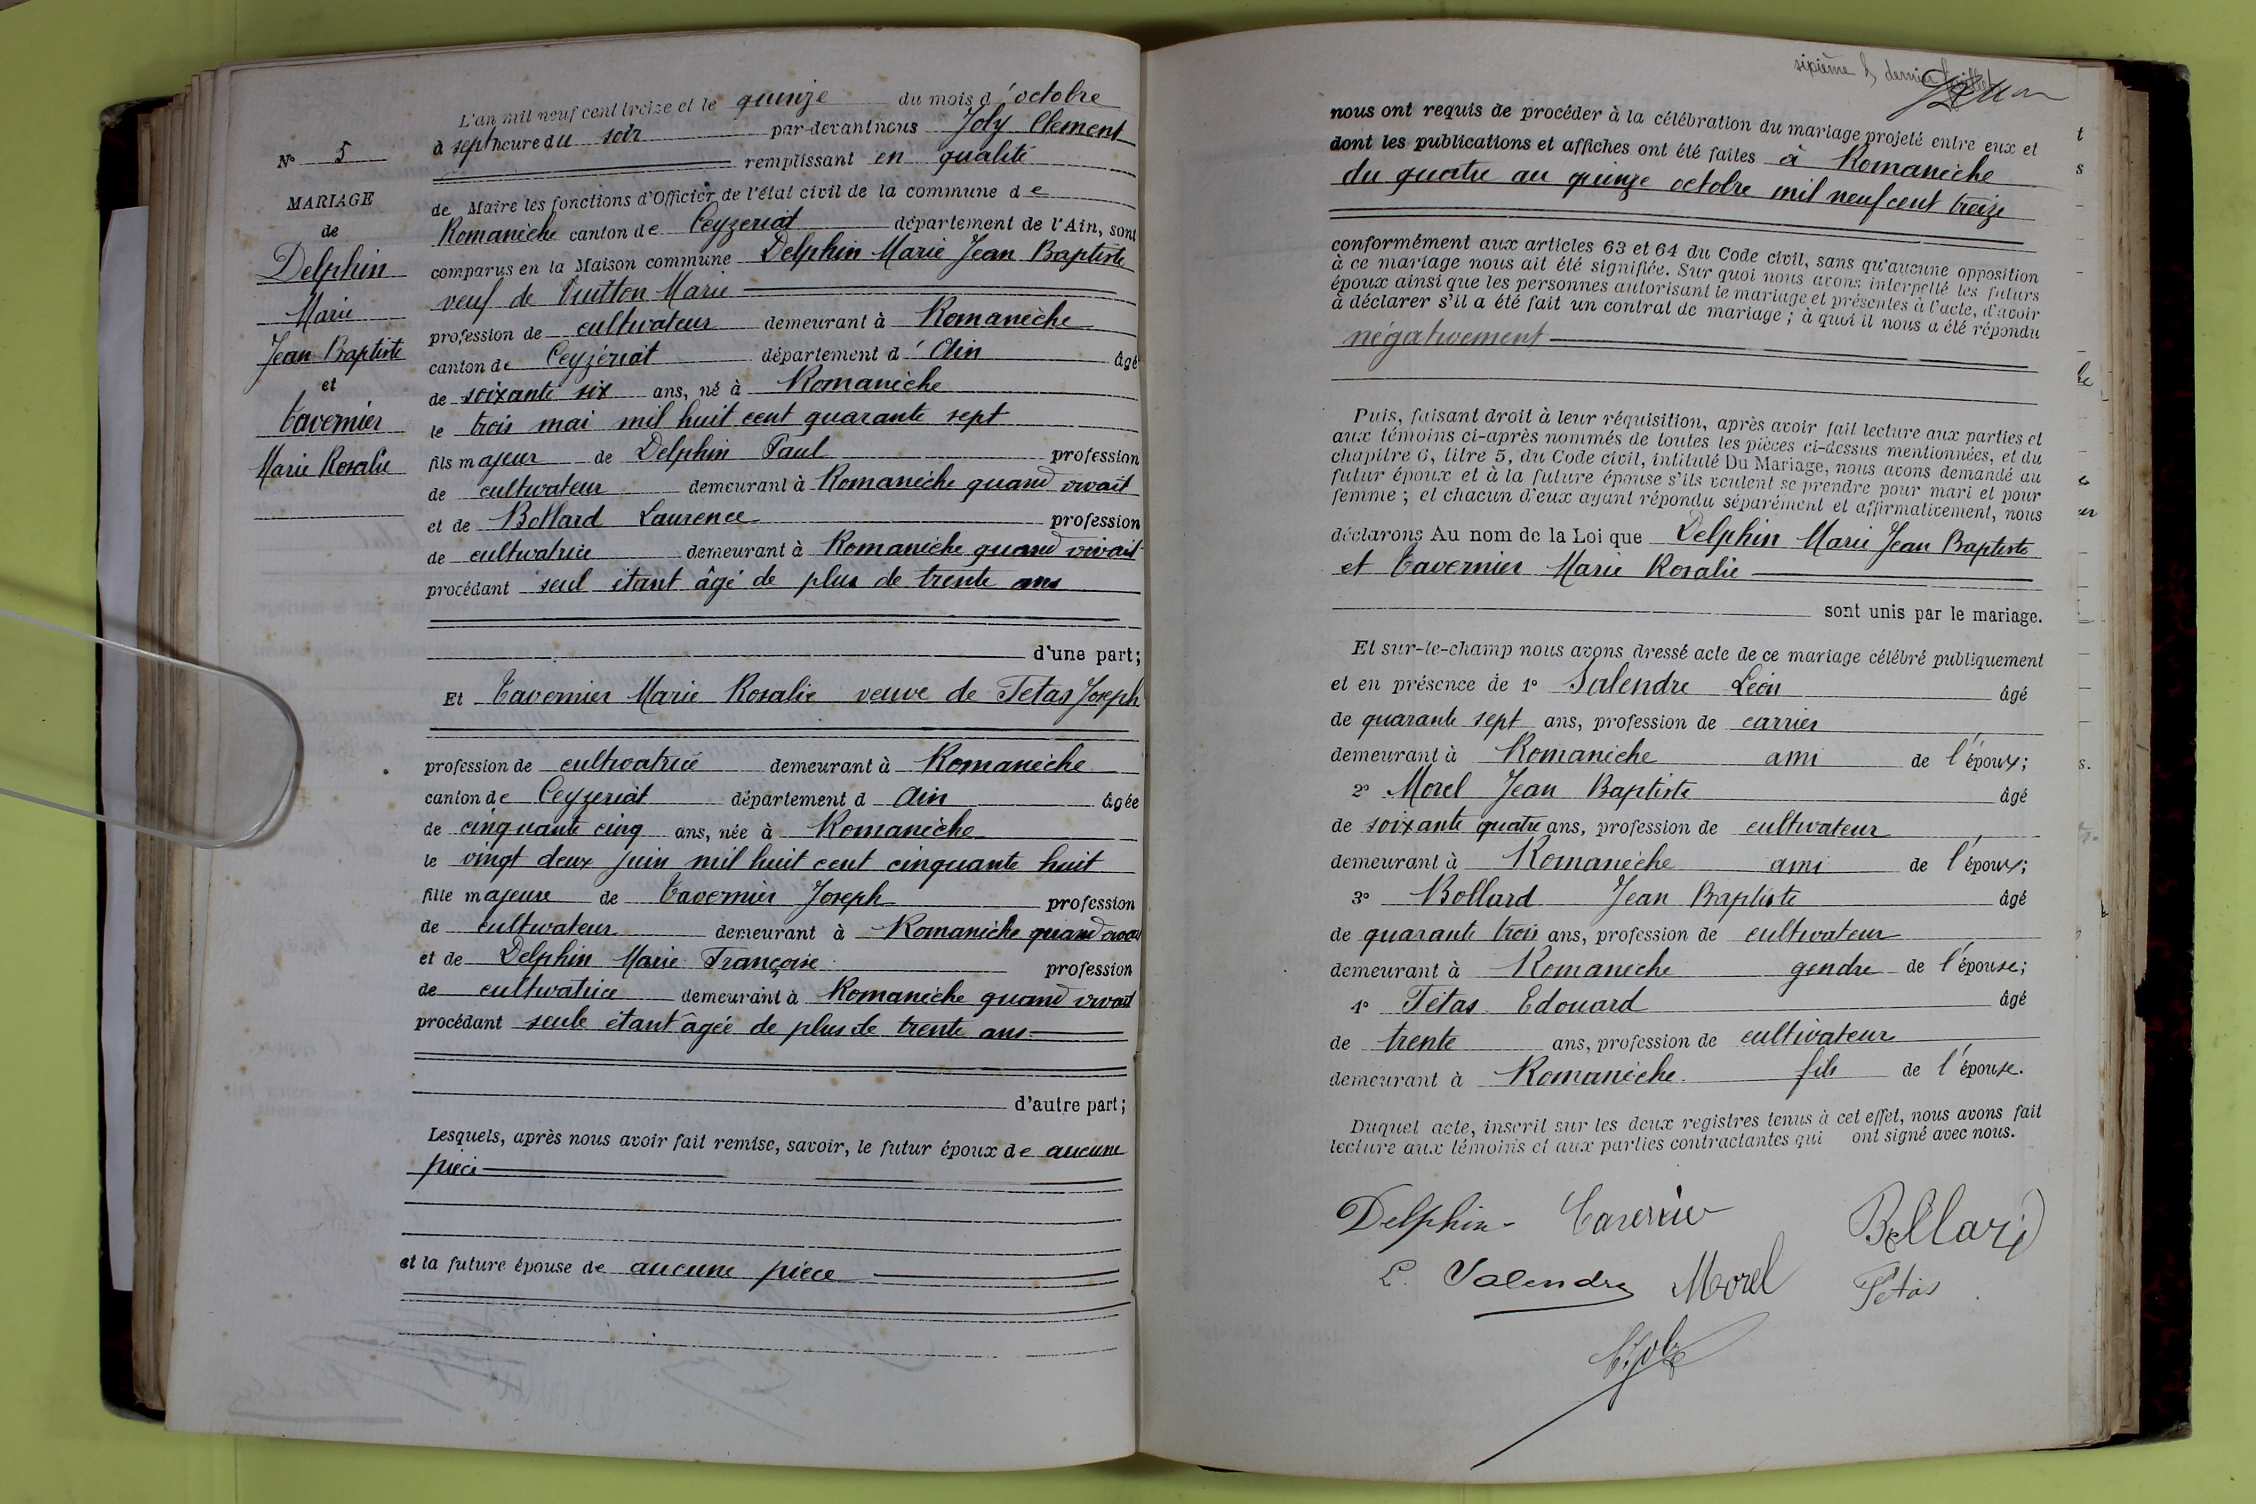 L'an mil neuf cent treize et le quinze du mois d'octobre
à sept heure du soir par-devant nous Joly Clement
remplissant en qualité
de Maire les fonctions d'Officier de l'état civil de la commune de
Romanèche canton de Ceyzeriat département de l'Ain, sont
comparus en la Maison commune Delphin Marie Jean Baptiste
veuf de Vuitton Marie
profession de cultivateur demeurant à Romanèche
canton de Ceyzériat département d'Ain âgé
de soixante six ans, né à Romanèche
le trois mai mil huit cent quarante sept
fils majeur de Delphin Paul profession
de cultivateur demeurant à Romanèche quand vivait
et de Bollard Laurence profession
de cultivatrice demeurant à Romanèche quand vivait
procédant seul étant âgé de plus de trente ans
d'une part;
Et Tavernier Marie Rosalie veuve de Tetas Joseph
profession de cultivatrice demeurant à Romanèche
canton de Ceyzeriat département d Ain âgée
de cinquante cinq ans, née à Romanèche
le vingt deux juin mil huit cent cinquante huit
fille majeure de Tavernier Joseph profession
de cultivateur demeurant à Romanèche quand vivait
et de Delphin Marie Françoise profession
de cultivatrice demeurant à Romanèche quand vivait
procédant seule étant âgée de plus de trente ans
d'autre part;
Lesquels, après nous avoir fait remise, savoir, le futur époux de aucune
pièce
et la future épouse de aucune pièce
N° 5
MARIAGE
de
Delphin
Marie
Jean Baptiste
et
Tavernier
Marie Rosalie
sixième & dernier feuillet
nous ont requis de procéder à la célébration du mariage projeté entre eux et
dont les publications et affiches ont été faites à Romanèche
du quatre au quinze octobre mil neuf cent treize
conformément aux articles 63 et 64 du Code civil, sans qu'aucune opposition
à ce mariage nous ait été signifiée. Sur quoi nous avons interpellé les futurs
époux ainsi que les personnes autorisant le mariage et présentes à l'acte, d'avoir
à déclarer s'il a été fait un contrat de mariage; à quoi il nous a été répondu
négativement
Puis, faisant droit à leur réquisition, après avoir fait lecture aux parties et
aux témoins ci-après nommés de toutes les pièces ci-dessus mentionnées, et du
chapitre 6, titre 5, du Code civil, intitulé Du Mariage, nous avons demandé au
futur époux et à la future épouse s'ils veulent se prendre pour mari et pour
femme; et chacun d'eux ayant répondu séparément et affirmativement, nous
déclarons Au nom de la Loi que Delphin Marie Jean Baptiste
et Tavernier Marie Rosalie
sont unis par le mariage.
Et sur-le-champ nous avons dressé acte de ce mariage célébré publiquement
et en présence de 1° Salendre Léon âgé
de quarante sept ans, profession de carrier
demeurant à Romanèche ami de l'époux;
2° Morel Jean Baptiste âgé
de soixante quatre ans, profession de cultivateur
demeurant à Romanèche ami de l'époux;
3° Bollard Jean Baptiste âgé
de quarante trois ans, profession de cultivateur
demeurant à Romanèche gendre de l'épouse;
4° Tétas Edouard âgé
de trente ans, profession de cultivateur
demeurant à Romanèche fils de l'épouse.
Duquel acte, inscrit sur les deux registres tenus à cet effet, nous avons fait
lecture aux témoins et aux parties contractantes qui ont signé avec nous.
Delphin Tavernier Bollard
L. Salendre Morel Tétas
C. Joly